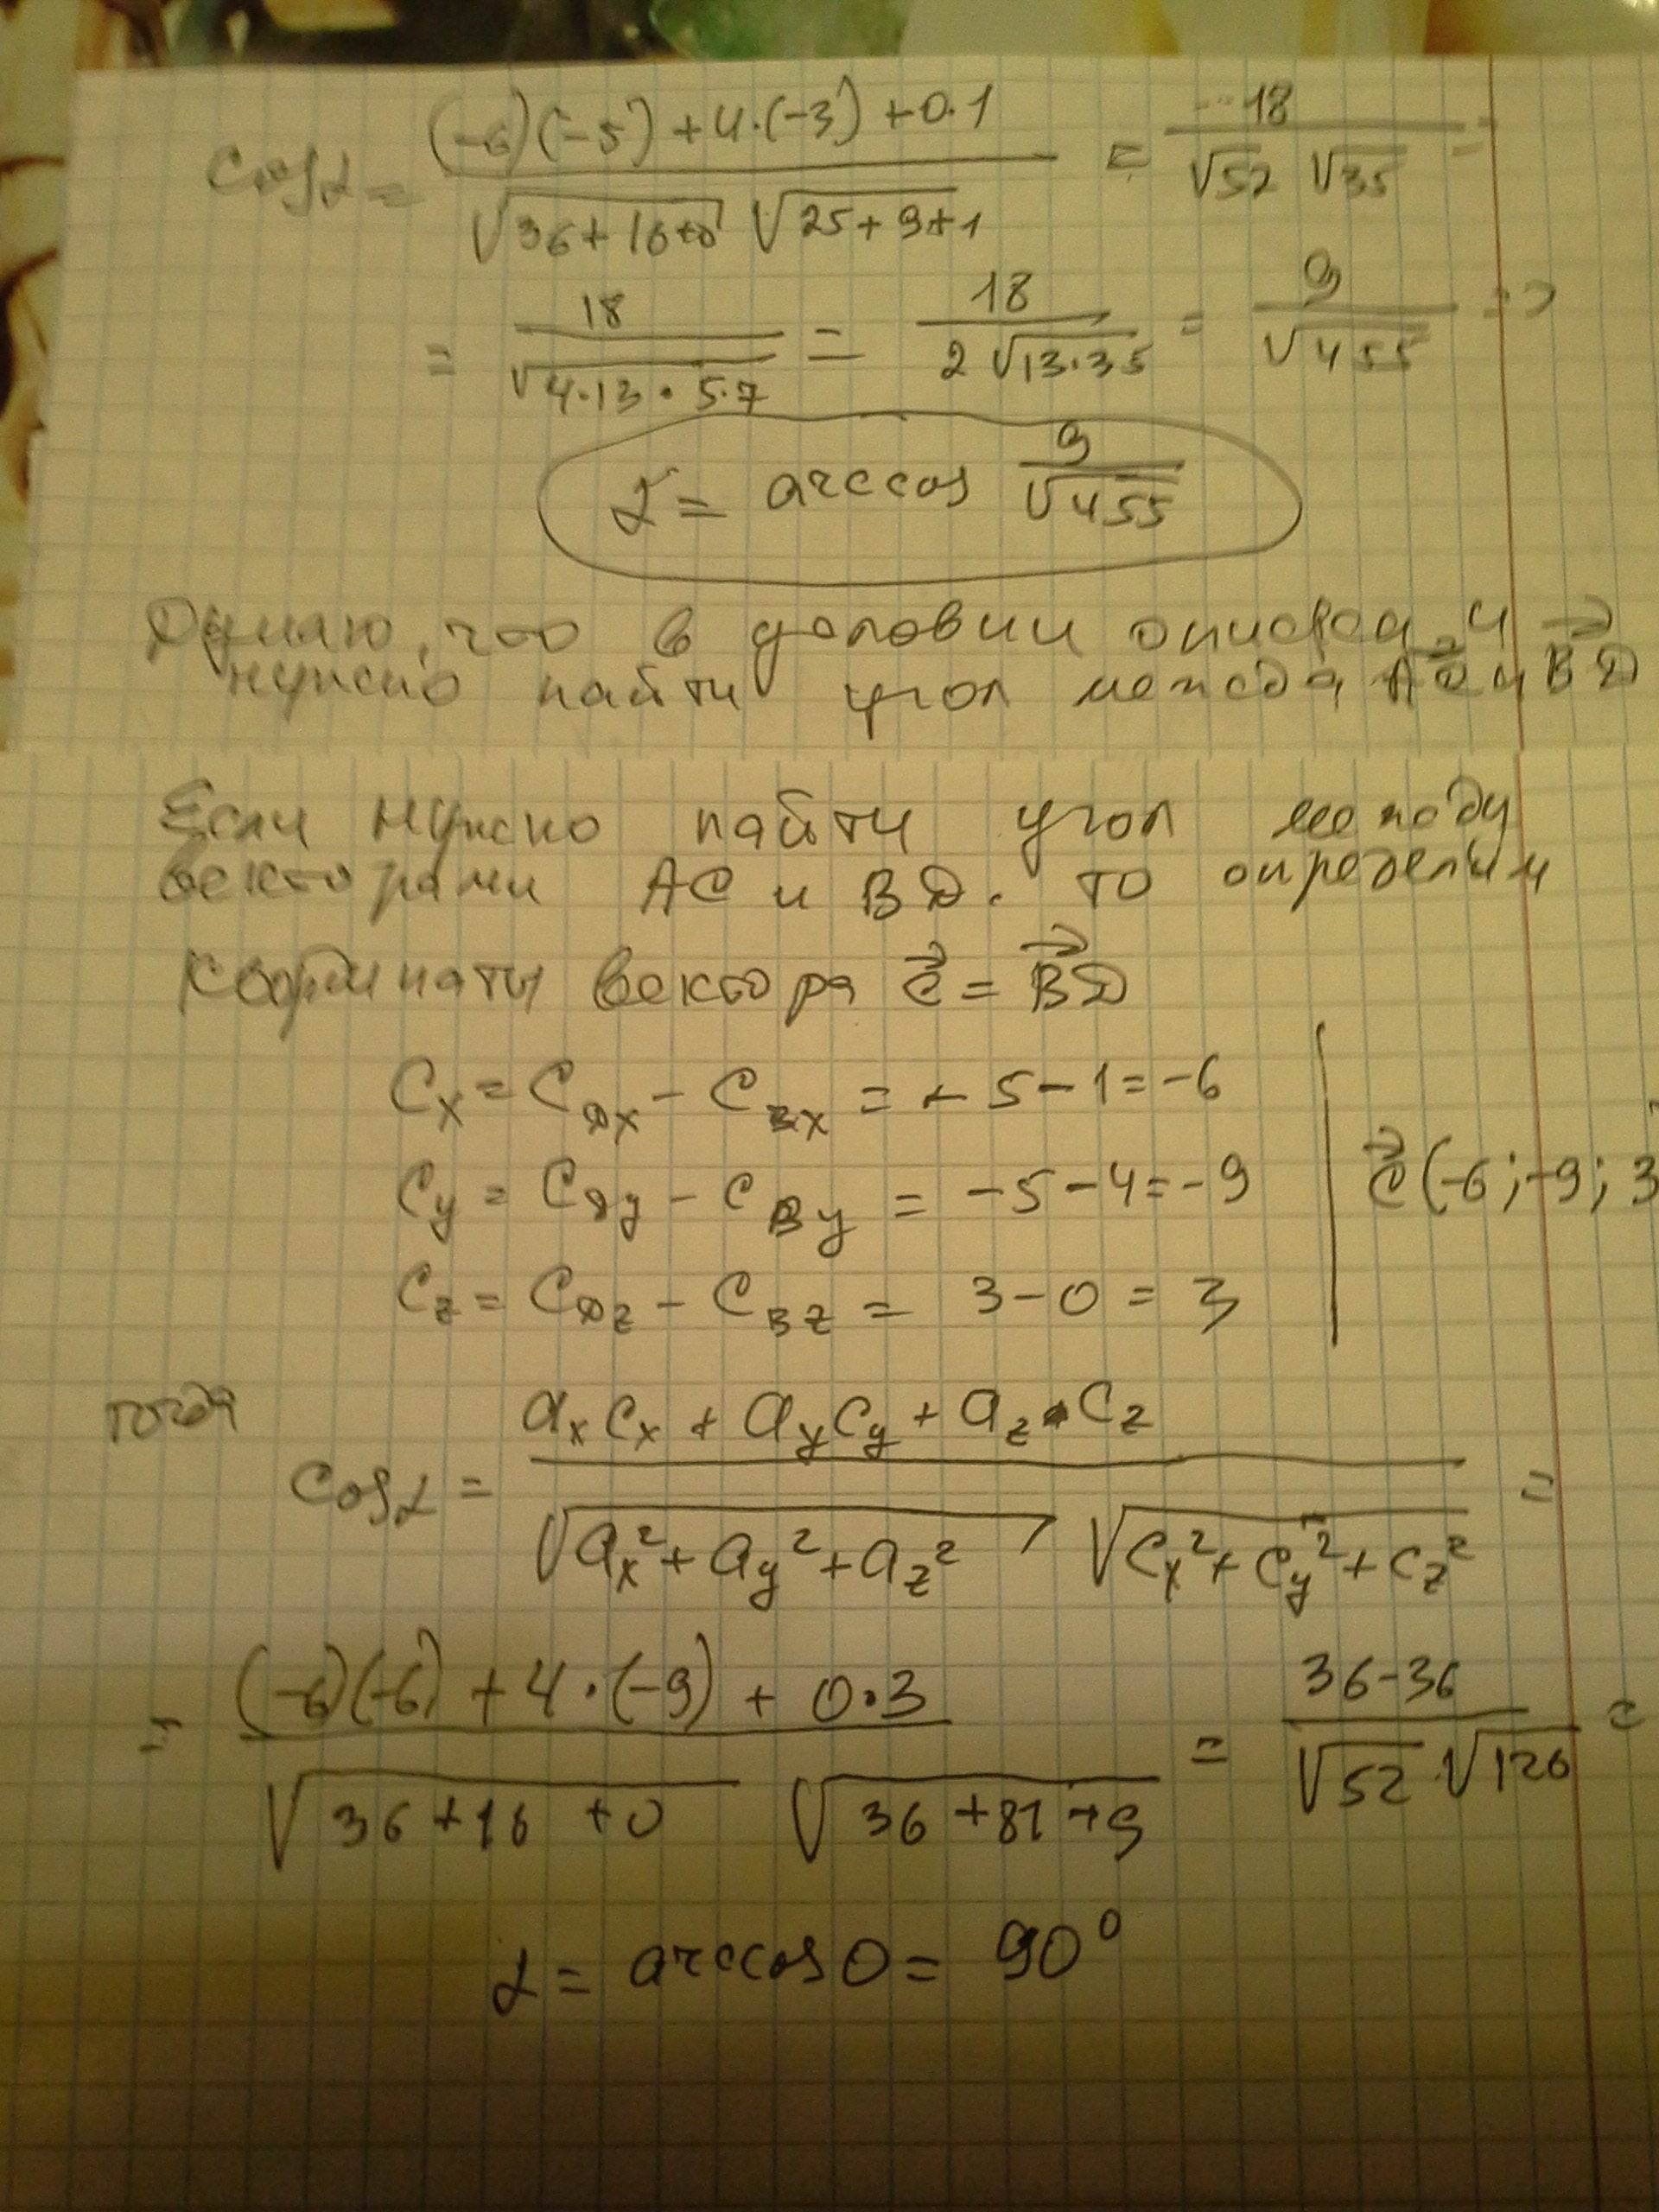 cosα = ((-6)(-5) + 4·(-3) + 0·1) / (√(36+16+0) √(25+9+1)) = 18 / (√52 √35) =
= 18 / √(4·13·5·7) = 18 / (2√(13·35)) = 9 / √455 =>
α = arccos 9/√455
Думаю, что в условии описка и
нужно найти угол между AC и BD
Если нужно найти угол между
векторами AC и BD. то определим
координаты вектора c⃗ = BD⃗
Cx = CDx - CBx = -5-1=-6
Cy = CDy - CBy = -5-4=-9
Cz = CDz - CBz = 3-0=3
c⃗(-6;-9;3
тогда
cosα = (axcx + aycy + az·cz) / (√(ax²+ay²+az²) √(cx²+cy²+cz²)) =
= ((-6)(-6) + 4·(-9) + 0·3) / (√(36+16+0) √(36+81+9)) = (36-36) / (√52·√126) =
α = arccos 0 = 90°